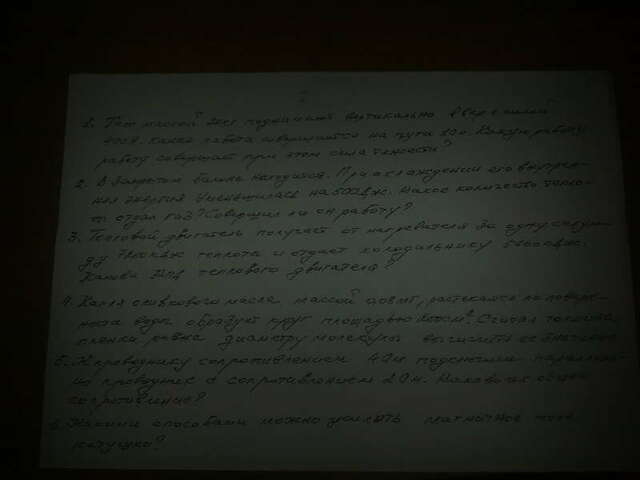 1. Тело массой поднимают вертикально вверх силой
400Н. Какая работа совершается на пути 10м. Какую работу
работу совершает при этом сила тяжести?
2. В закрытом баллоне находится. При охлаждении его внутрен-
няя энергия уменьшилась на 500Дж. Какое количество тепло-
ты отдал газ? Совершил ли он работу?
3. Тепловой двигатель получает от нагревателя за одну секун-
ду теплоты и отдает холодильнику
Каков КПД теплового двигателя?
4. Капля оливкового масла массой растекаясь по поверх-
ности воды образует круг площадью Считая толщина
пленки равна диаметру молекулы вычислить ее
5. К проводнику сопротивлением 4Ом подключили параллель-
но проводник с сопротивлением 2Ом. Каково их общее
сопротивление?
6. Какими способами можно усилить магнитное поле
катушки?